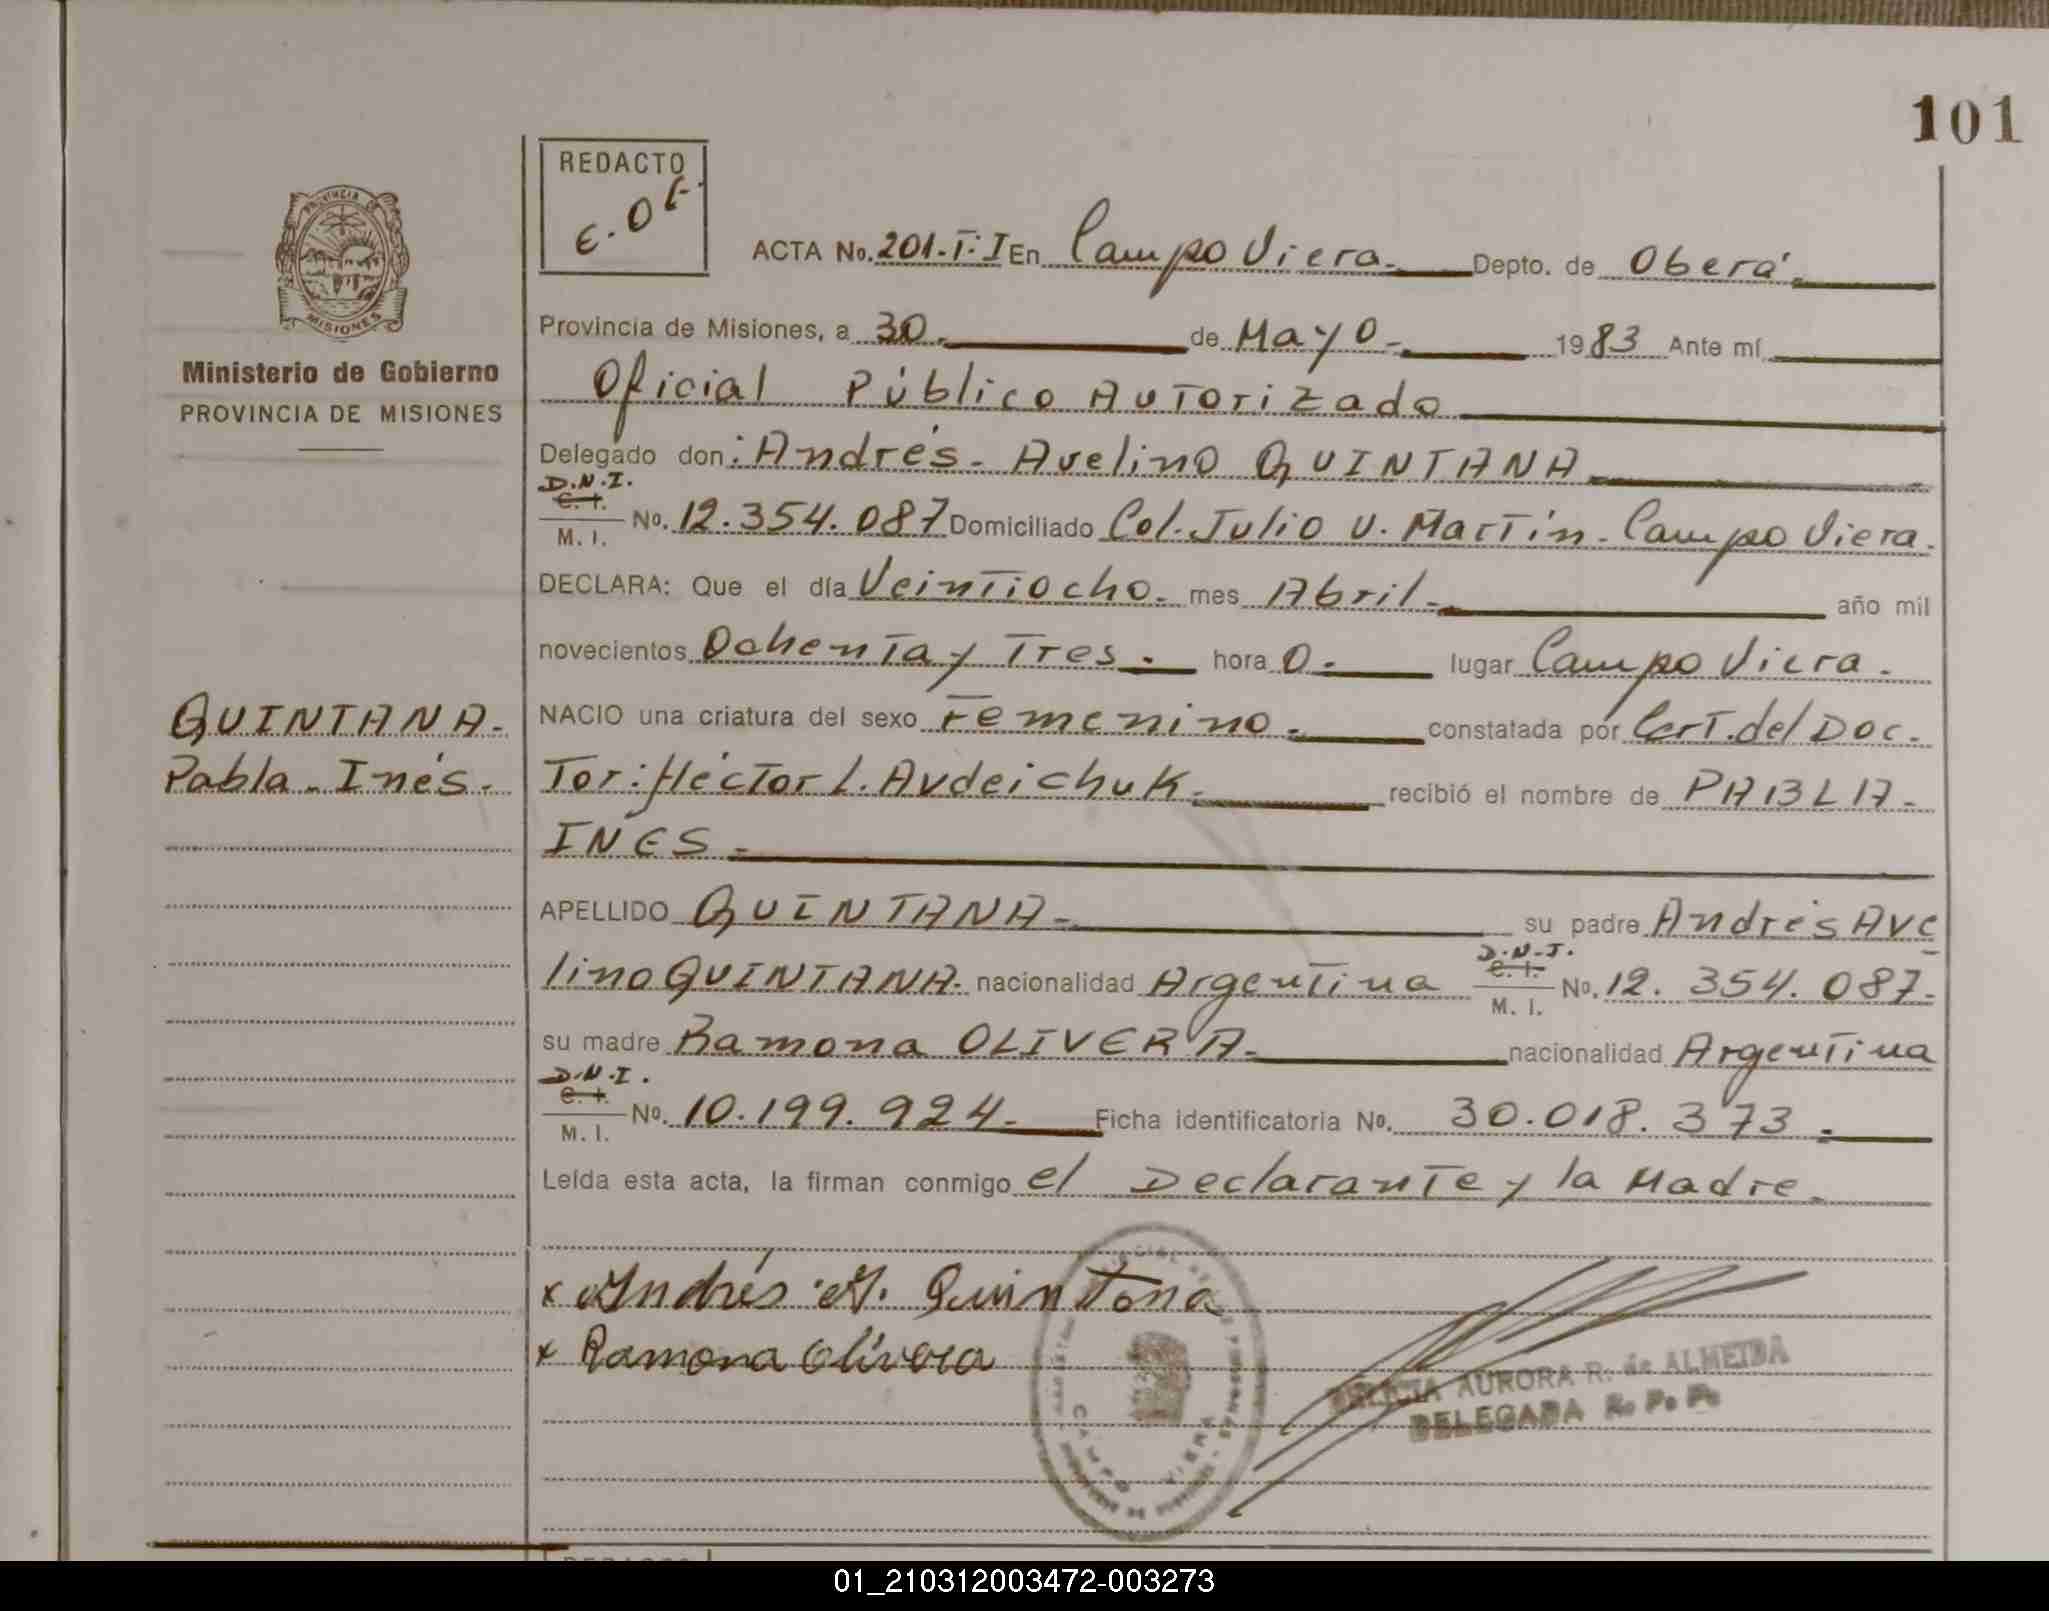 101
REDACTO
E.O.F.
PROVINCIA DE
MISIONES
Ministerio de Gobierno
PROVINCIA DE MISIONES
ACTA No. 201-T:I En Campo Viera. Depto. de Oberá.
Provincia de Misiones, a 30. de Mayo. 1983 Ante mí
Oficial Público Autorizado
Delegado don: Andrés. Avelino QUINTANA
D.N.I.
C. I.
M. I. No. 12.354.087 Domiciliado Col. Julio U. Martín. Campo Viera.
DECLARA: Que el día Veintiocho. mes Abril. año mil
novecientos Ochenta y Tres. hora 0. lugar Campo Viera.
QUINTANA.
Pabla. Inés.
NACIO una criatura del sexo Femenino. constatada por Cert. del Doc.
Tor: Héctor L. Avdeichuk. recibió el nombre de PABLA.
INES.
APELLIDO QUINTANA. su padre Andrés Ave
lino QUINTANA. nacionalidad Argentina D.N.I. C. I. M. I. No. 12. 354. 087.
su madre Ramona OLIVERA. nacionalidad Argentina
D.N.I.
C. I.
M. I. No. 10.199.924. Ficha identificatoria No. 30.018.373.
Leída esta acta, la firman conmigo el Declarante y la Madre.
x Andrés A. Quintana
x Ramona Olivera
CAMPO VIERA
DELICIA AURORA R. de ALMEIDA
DELEGADA R. P. P.
01_210312003472-003273